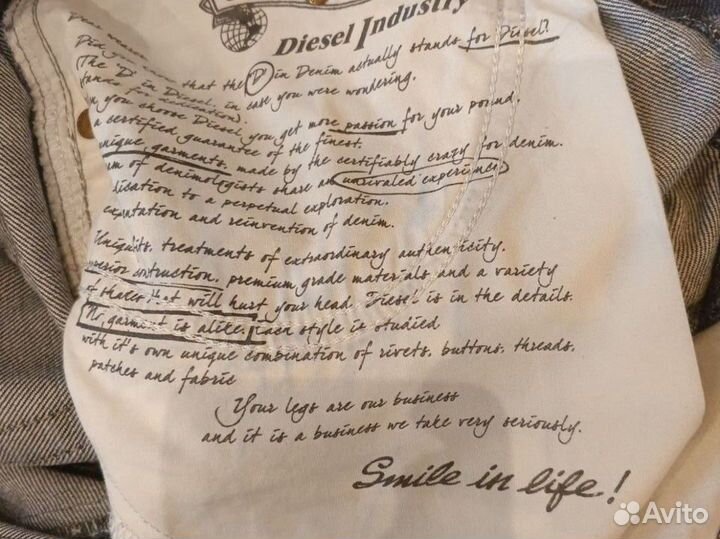 Diesel Industry
Dear wearer
Did you know that the 'D' in Denim actually stands for Diesel?
(The 'D' in Diesel, in case you were wondering,
stands for dedication).
n you choose Diesel you get more passion for your pound,
a certified guarantee of the finest,
unique garments, made by the certifiably crazy for denim.
am of denimologists share an unrivaled experience,
dication to a perpetual exploration,
and reinvention of denim.
treatments of extraordinary authenticity,
perior construction, premium grade materials and a variety
of shades that will hurt your head. Diesel is in the details.
No garment is alike, each style is studied
with it's own unique combination of rivets, buttons, threads,
patches and fabric
Your legs are our business
and it is a business we take very seriously.
Smile in life!
Avito